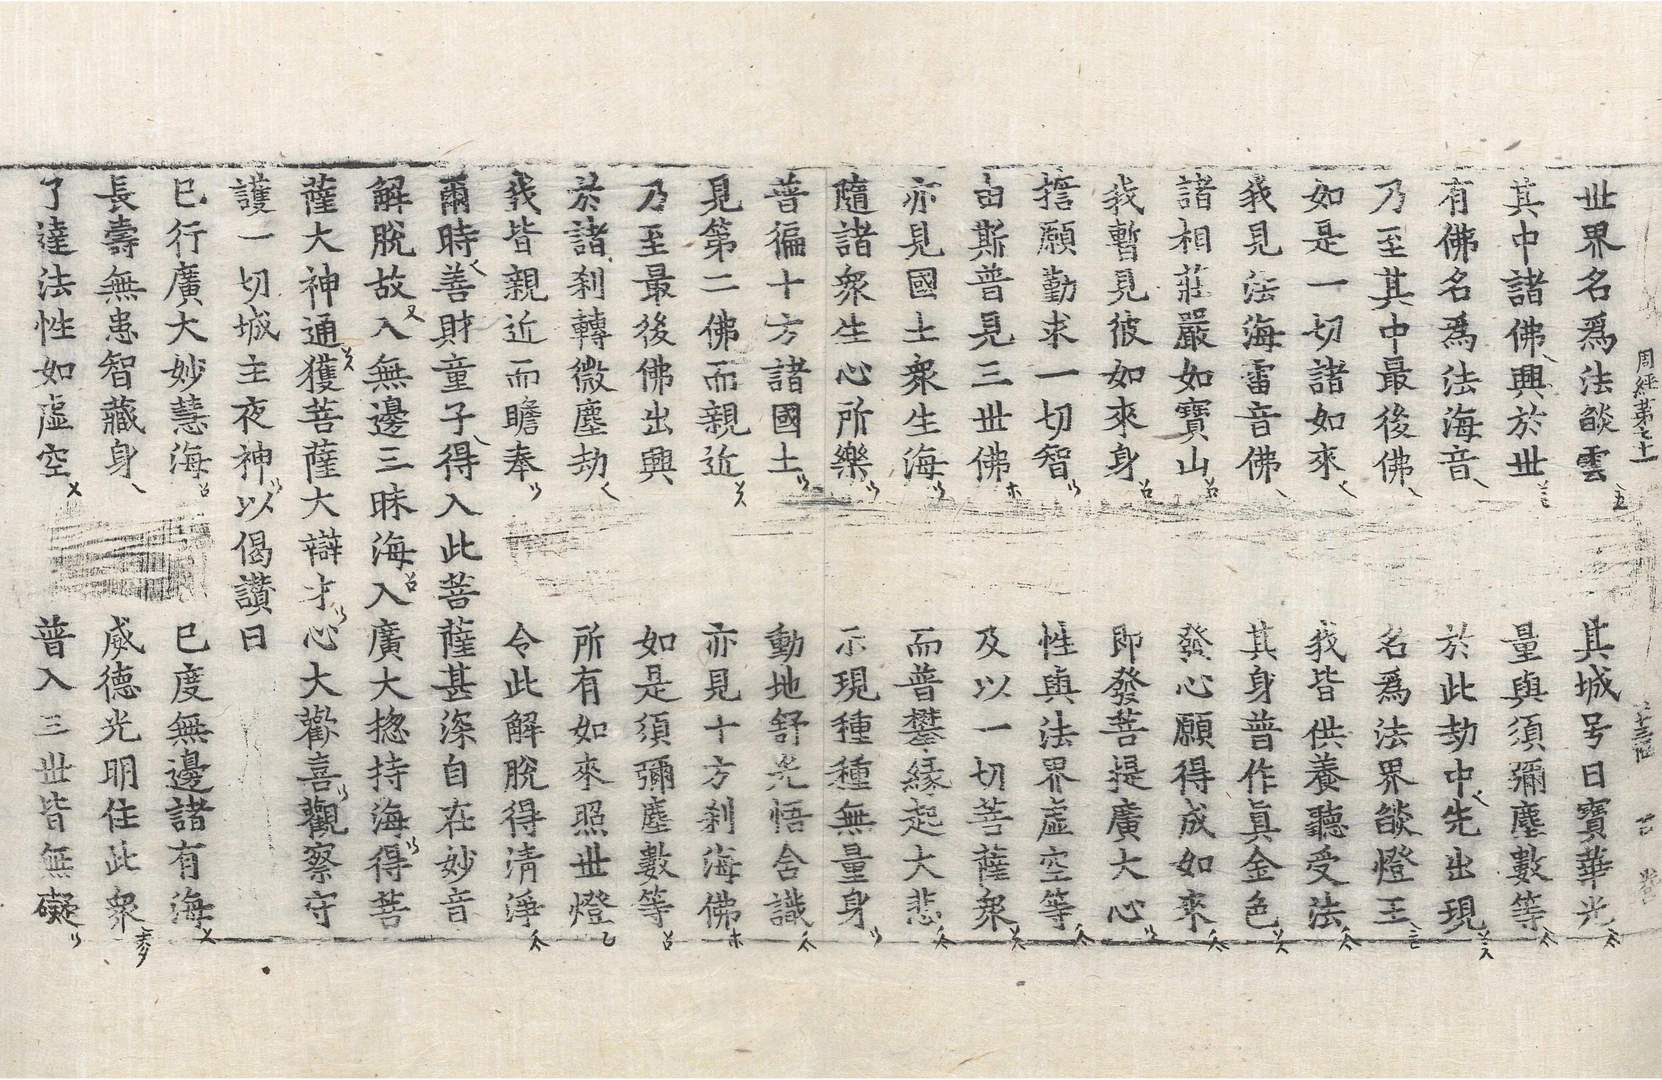 周經第七十一
世界名爲法燄雲 其城号曰寶華光
其中諸佛興於世 量與須彌塵數等
有佛名爲法海音 於此劫中先出現
乃至其中最後佛 名爲法界燄燈王
如是一切諸如來 我皆供養聽受法
我見法海雷音佛 其身普作眞金色
諸相莊嚴如寶山 發心願得成如來
我暫見彼如來身 即發菩提廣大心
擔願勤求一切智 性與法界虛空等
由斯普見三世佛 及以一切菩薩衆
亦見國土衆生海 而普攀緣起大悲
隨諸衆生心所樂 示現種種無量身
普徧十方諸國土 動地舒光悟含識
見第二佛而親近 亦見十方刹海佛
乃至最後佛出興 如是須彌塵數等
於諸刹轉微塵劫 所有如來照世燈
我皆親近而瞻奉 令此解脫得清淨
爾時善財童子得入此菩薩甚深自在妙音
解脫故入無邊三昧海入廣大揔持海得菩
薩大神通獲菩薩大辯才心大歡喜觀察守
護一切城主夜神以偈讚曰
已行廣大妙慧海 已度無邊諸有海
長壽無患智藏身 威德光明住此衆
了達法性如虛空 普入三世皆無礙